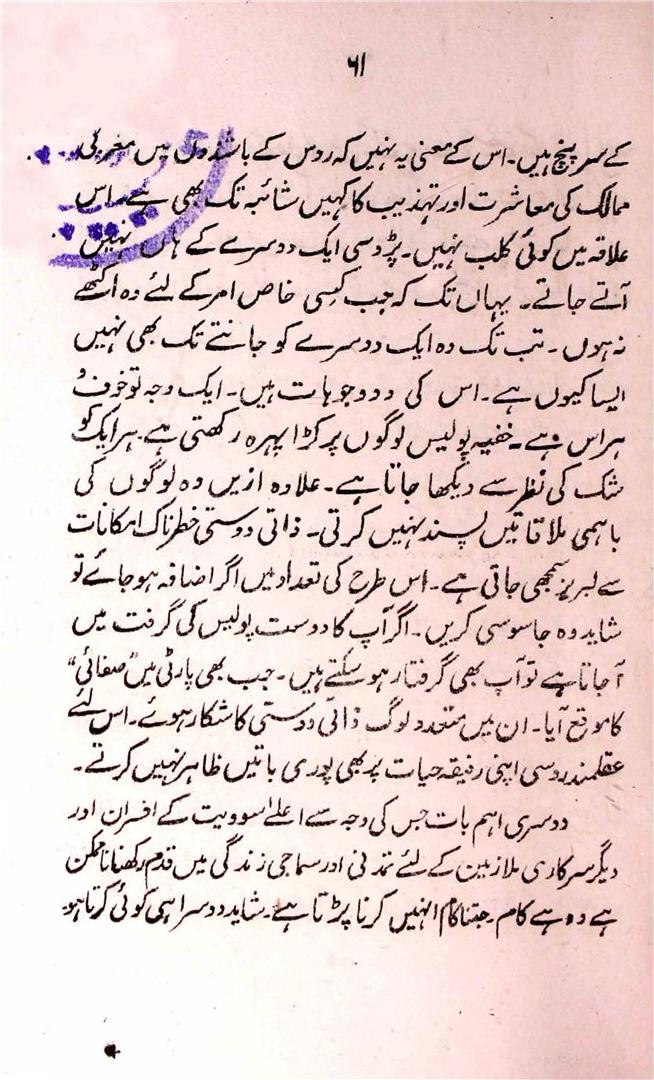 ۶۱
کے سر پنچ ہیں۔ اس کے معنی یہ نہیں کہ روس کے باشندوں میں مغربی
ممالک کی معاشرت اور تہذیب کا کہیں شائبہ تک بھی ہے۔ اس
علاقہ میں کوئی کلب نہیں۔ پڑوسی ایک دوسرے کے ہاں نہیں
آتے جاتے۔ یہاں تک کہ جب کسی خاص امر کے لئے وہ اکٹھے
نہ ہوں۔ تب تک وہ ایک دوسرے کو جانتے تک بھی نہیں
ایسا کیوں ہے۔ اس کی دو وجوہات ہیں۔ ایک وجہ تو خوف و
ہراس ہے۔ خفیہ پولیس لوگوں پر کڑا پہرہ رکھتی ہے۔ ہر ایک کو
شک کی نظر سے دیکھا جاتا ہے۔ علاوہ ازیں وہ لوگوں کی
باہمی ملاقاتیں پسند نہیں کرتی۔ ذاتی دوستی خطرناک امکانات
سے لبریز سمجھی جاتی ہے۔ اس طرح کی تعداد میں اگر اضافہ ہو جائے تو
شاید وہ جاسوسی کریں۔ اگر آپ کا دوست پولیس کی گرفت میں
آ جاتا ہے تو آپ بھی گرفتار ہو سکتے ہیں۔ جب بھی پارٹی میں "صفائی"
کا موقع آیا۔ ان میں متعدد لوگ ذاتی دوستی کا شکار ہوئے۔ اس لئے
عقلمند روسی اپنی رفیقہ حیات پر بھی پوری باتیں ظاہر نہیں کرتے۔
دوسری اہم بات جس کی وجہ سے اعلےٰ سوویت کے افسران اور
دیگر سرکاری ملازمین کے لئے تمدنی اور سماجی زندگی میں قدم رکھنا ناممکن
ہے وہ ہے کام۔ جتنا کام انہیں کرنا پڑتا ہے۔ شاید دوسرا ہی کوئی کرتا ہو۔